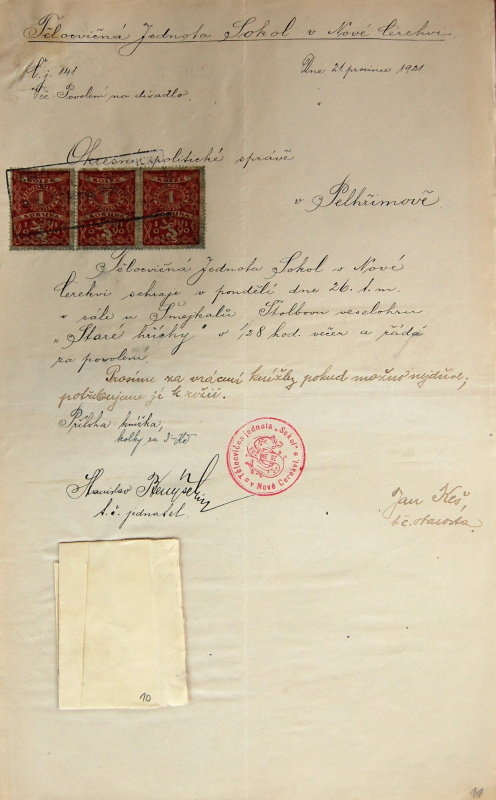 Tělocvičná Jednota Sokol v Nové Cerekvi
Č. j. 141
Dne 21. prosince 1921.
Věc: Povolení na divadlo.
Okresní politické správě
v Pelhřimově.
KOLEK
KOLEK
KOLEK
1
1
1
KORUNA
KORUNA
KORUNA
Tělocvičná Jednota Sokol v Nové
Cerekvi sehraje v pondělí dne 26. t. m.
v sále u Šmejkalů Štolbovu veselohru
„Staré hříchy" o ½8 hod. večer a žádá
za povolení.
Prosíme za vrácení knížky pokud možno nejdříve,
potřebujeme ji k režii.
Příloha knížka,
kolky za 3 Kč
Tělocvičná jednota „Sokol"
v Nové Cerekvi
Stanislav
t. č. jednatel.
Jan Keš,
t. č. starosta
10
11